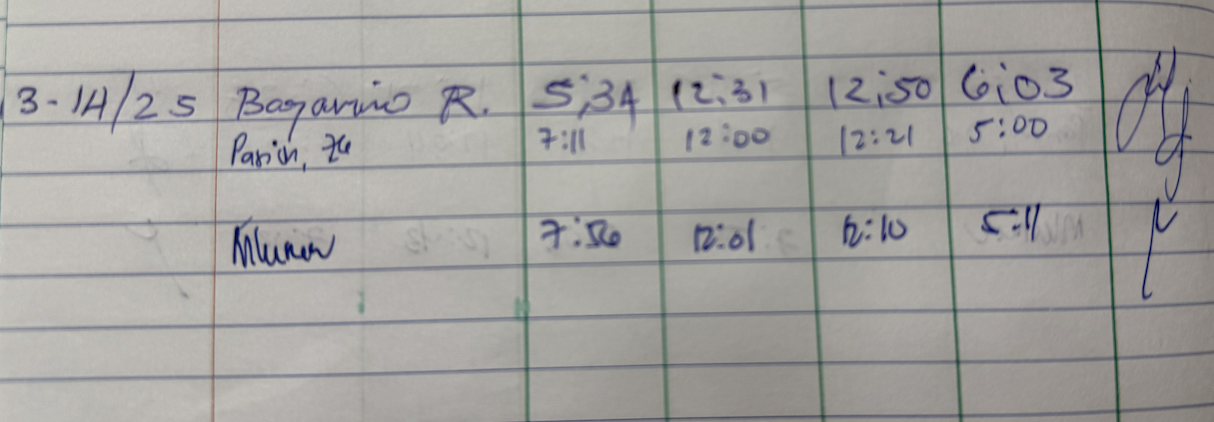 3-14/25 Bagarino R. 5:34 12:31 12:50 6:03
7:11 12:00 12:21 5:00
7:56 12:01 12:10 5:11